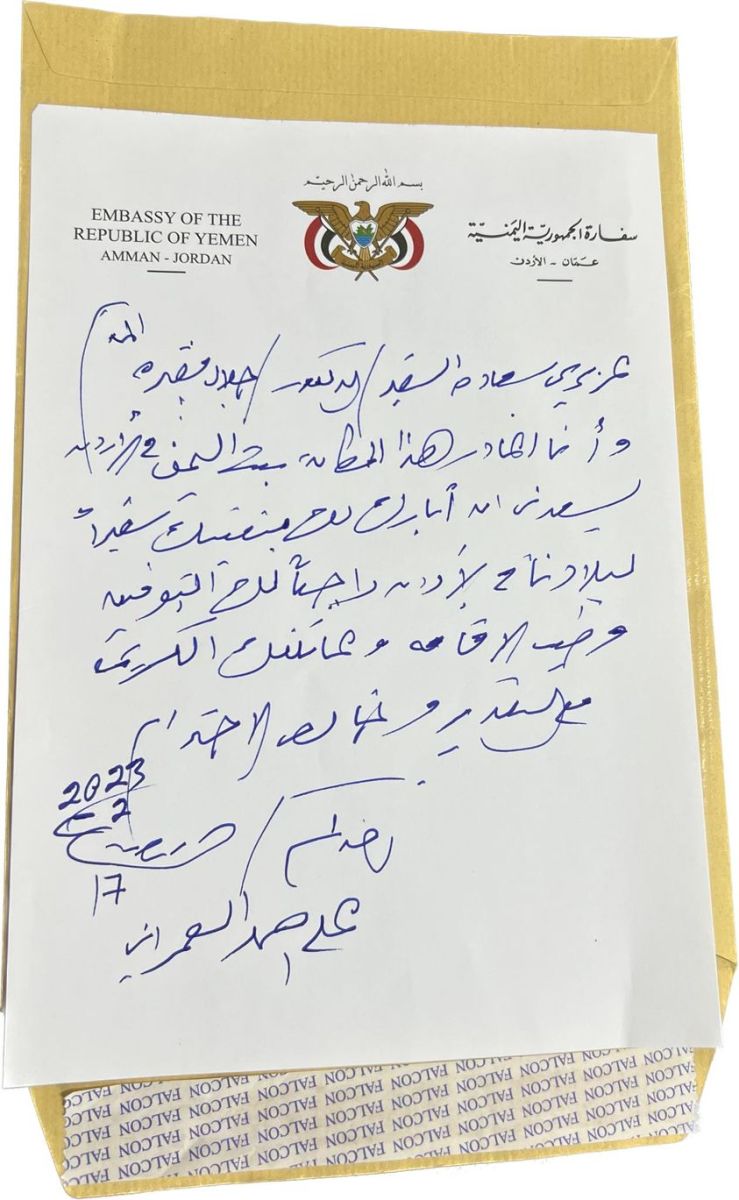 بسم الله الرحمن الرحيم
EMBASSY OF THE
REPUBLIC OF YEMEN
AMMAN - JORDAN
سفارة الجمهورية اليمنية
عمّان - الأردن
عزيزي سعادة السفير / الدكتور / جلال فقيره
وأنا أغادر هذا المكان بيت اليمن في الأردن
يسعدني ان أبارك لك تعيينك سفيراً
لبلادنا في الأردن راجياً لك التوفيق
وطيب الاقامه وعائلتك الكريمة
مع التقدير وخالص الاحترام
2023
2
17
اخوكم /
علي احمد العمراني
FALCON FALCON FALCON FALCON FALCON FALCON